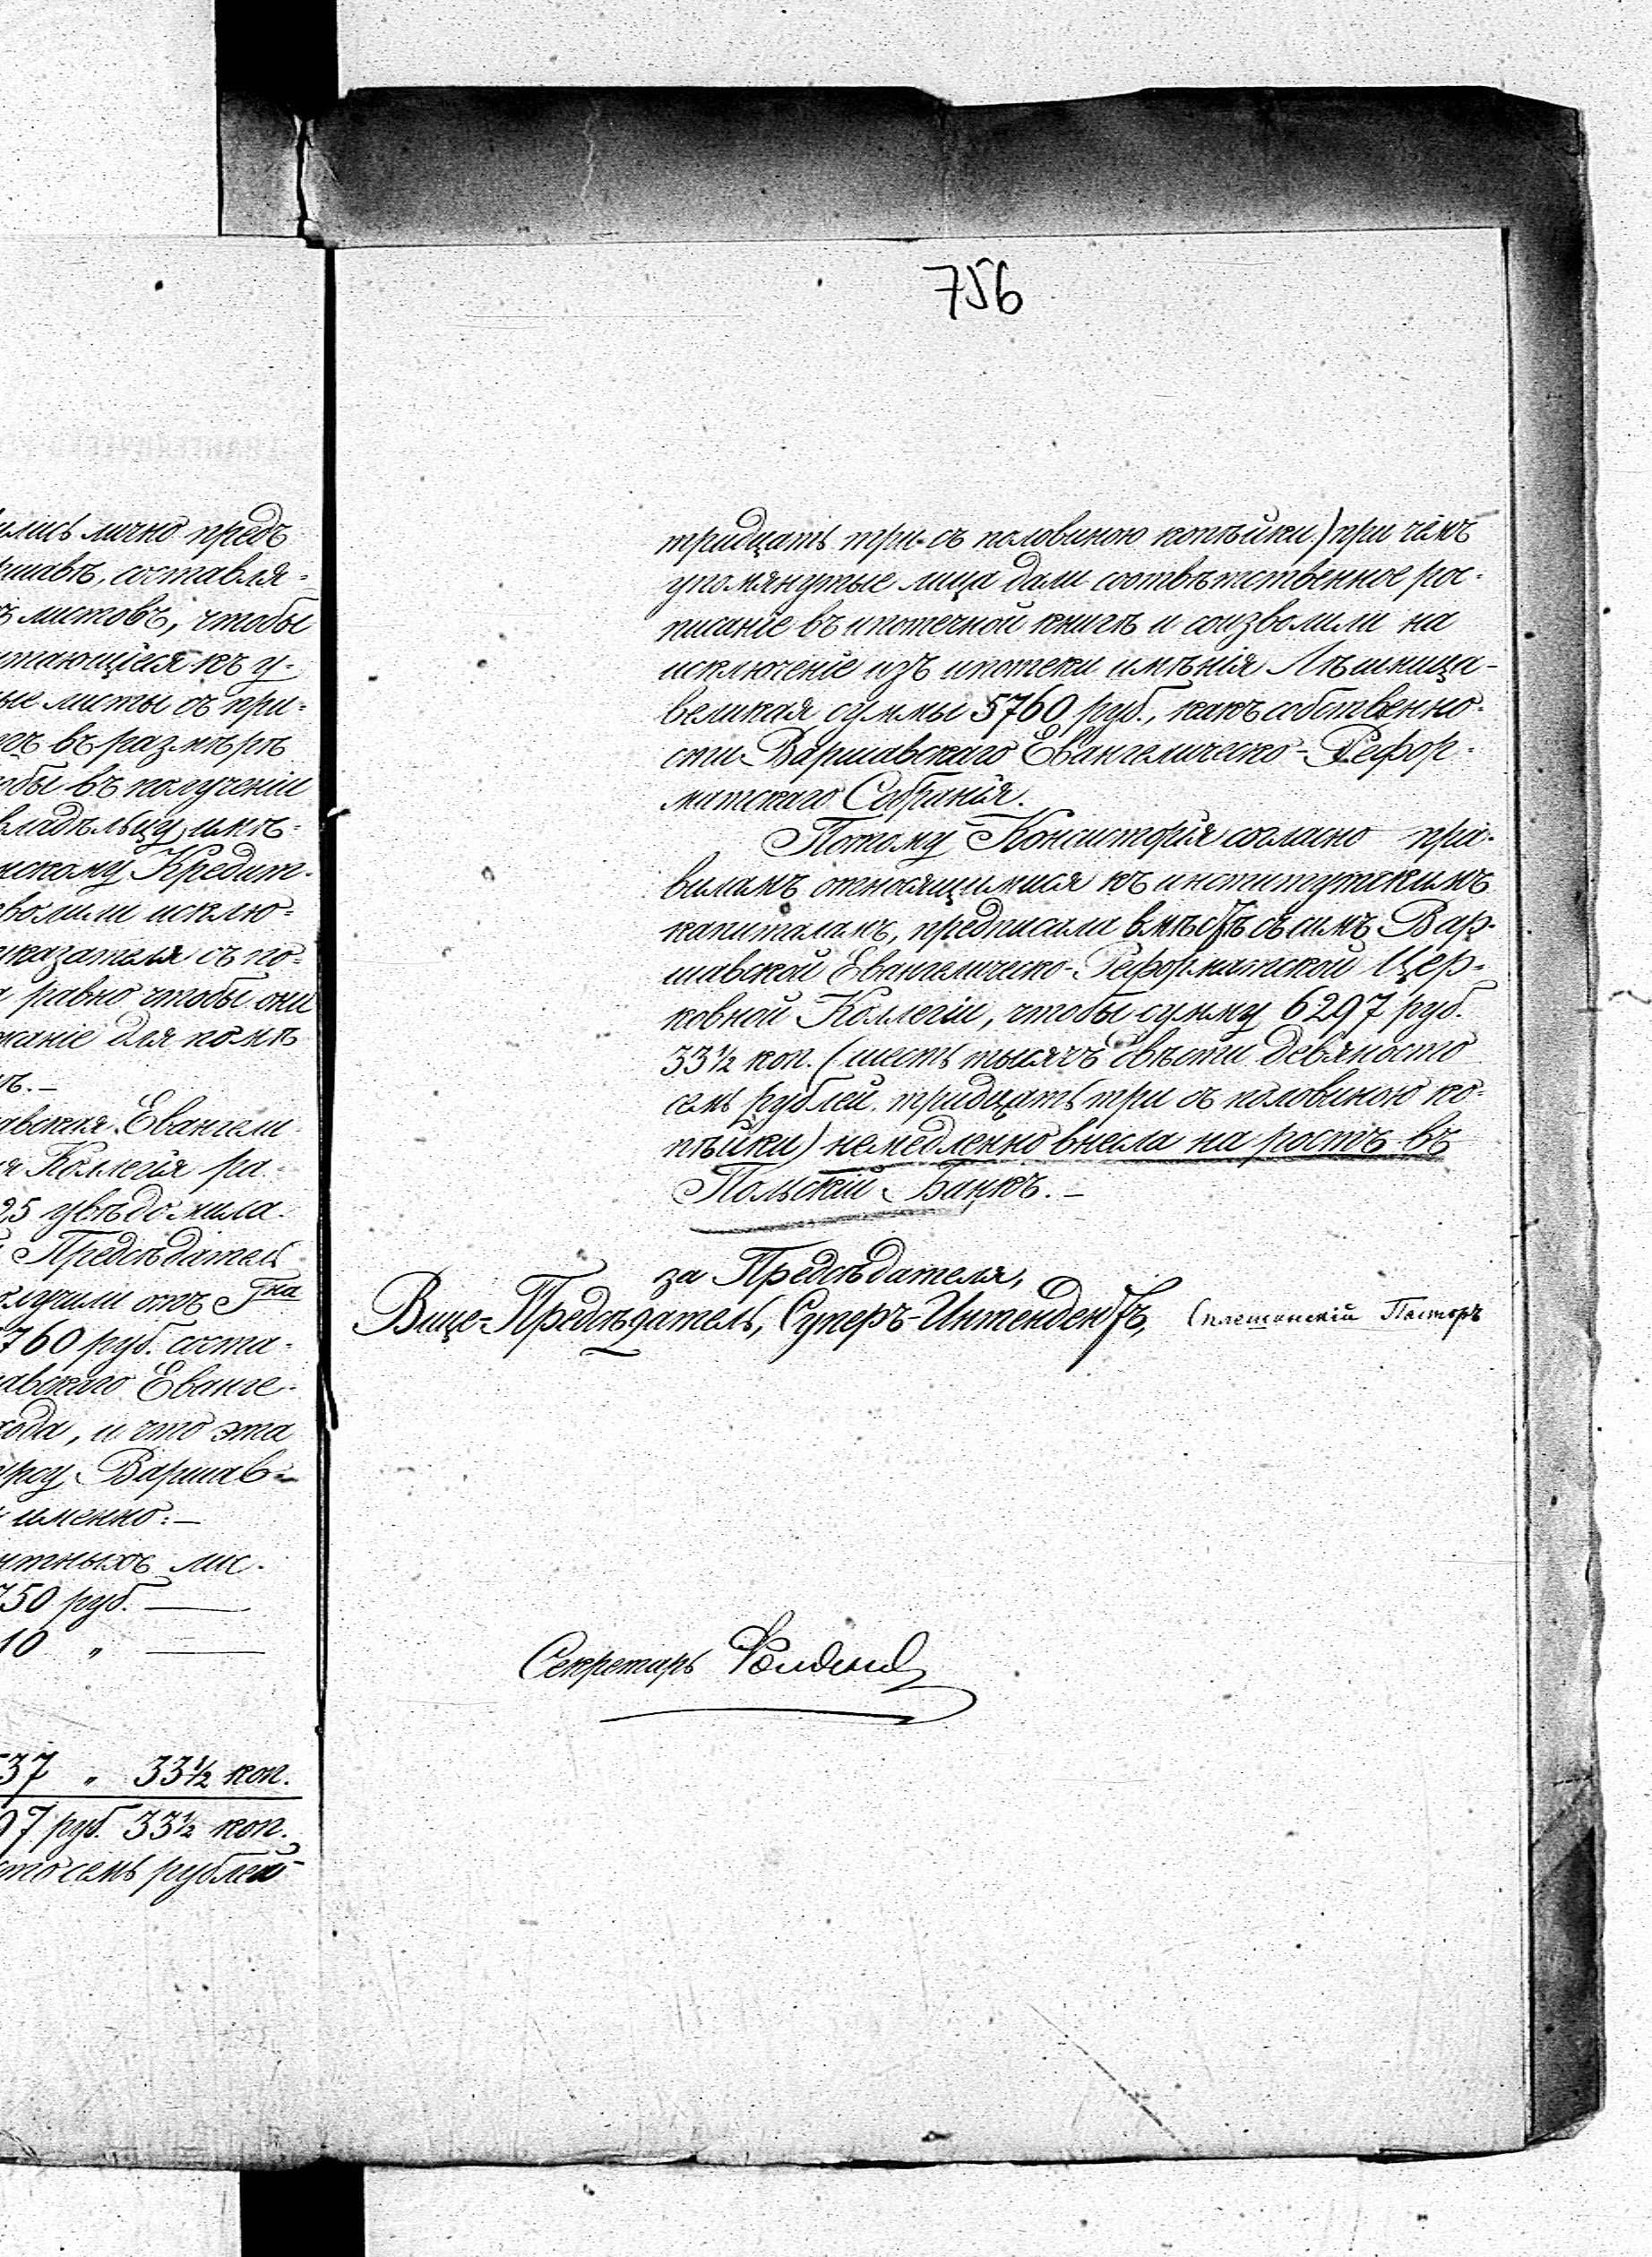 756
ились лично предъ
ршавѣ, составля-
ъ листовъ, чтобы
итающіеся къ у-
ые листы съ при-
въ размѣрѣ
обы въ полученіи
владѣльцу имѣ-
нскому Кредит-
волили исклю-
казателя съ по-
а равно чтобы они
жаніе для помѣ
ъ. —
авская Евангели
я Коллегія ра
25 увѣдомила
Предсѣдатель
олучили отъ Гна
5760 руб. соста-
авскаго Еванге-
хода, и что эта
рсу Варшав-
именно: —
итныхъ лис-
750 руб. —
10 " —
537 " 33½ коп.
97 руб. 33½ коп.
сто семь рублей
тридцать три съ половиною копѣйки) при чемъ
упомянутые лица дали соотвѣтственное рос-
писаніе въ ипотечной книгѣ и соизволили на
исключеніе изъ ипотеки имѣнія Лѣшница-
великая суммы 5760 руб., какъ собственно-
сти Варшавскаго Евангелическо-Рефор-
матскаго Собранія.
Потому Консисторія согласно пра-
виламъ относящимися къ институтскимъ
капиталамъ, предписала вмѣстѣ съ симъ Вар-
шавской Евангелическо-Реформатской Цер-
ковной Коллегіи, чтобы сумму 6297 руб.
33½ коп. (шесть тысячъ двѣсти девяносто
семь рублей тридцать три съ половиною ко-
пѣйки) немедленно внесла на ростъ въ
Польскій Банкъ. —
за Предсѣдателя,
Вице-Предсѣдатель, Суперъ-Интендентъ, Сплешинскій Пасторъ
Секретарь